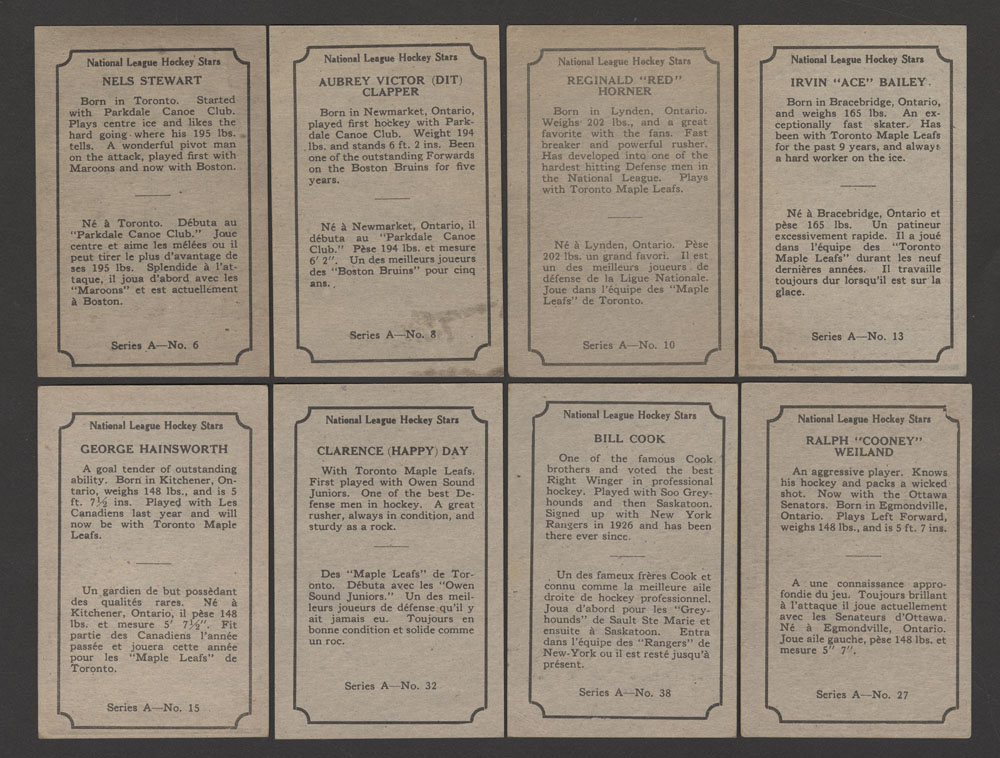 National League Hockey Stars
NELS STEWART
Born in Toronto. Started
with Parkdale Canoe Club.
Plays centre ice and likes the
hard going where his 195 lbs.
tells. A wonderful pivot man
on the attack, played first with
Maroons and now with Boston.
Né à Toronto. Débuta au
"Parkdale Canoe Club." Joue
centre et aime les mêlées ou il
peut tirer le plus d'avantage de
ses 195 lbs. Splendide à l'at-
taque, il joua d'abord avec les
"Maroons" et est actuellement
à Boston.
Series A—No. 6
National League Hockey Stars
AUBREY VICTOR (DIT)
CLAPPER
Born in Newmarket, Ontario,
played first hockey with Park-
dale Canoe Club. Weight 194
lbs. and stands 6 ft. 2 ins. Been
one of the outstanding Forwards
on the Boston Bruins for five
years.
Né à Newmarket, Ontario, il
débuta au "Parkdale Canoe
Club." Pèse 194 lbs. et mesure
6' 2". Un des meilleurs joueurs
des "Boston Bruins" pour cinq
ans.
Series A—No. 8
National League Hockey Stars
REGINALD "RED"
HORNER
Born in Lynden, Ontario.
Weighs 202 lbs., and a great
favorite with the fans. Fast
breaker and powerful rusher.
Has developed into one of the
hardest hitting Defense men in
the National League. Plays
with Toronto Maple Leafs.
Né à Lynden, Ontario. Pèse
202 lbs. un grand favori. Il est
un des meilleurs joueurs de
défense de la Ligue Nationale.
Joue dans l'équipe des "Maple
Leafs" de Toronto.
Series A—No. 10
National League Hockey Stars
IRVIN "ACE" BAILEY
Born in Bracebridge, Ontario,
and weighs 165 lbs. An ex-
ceptionally fast skater. Has
been with Toronto Maple Leafs
for the past 9 years, and always
a hard worker on the ice.
Né à Bracebridge, Ontario et
pèse 165 lbs. Un patineur
excessivement rapide. Il a joué
dans l'équipe des "Toronto
Maple Leafs" durant les neuf
dernières années. Il travaille
toujours dur lorsqu'il est sur la
glace.
Series A—No. 13
National League Hockey Stars
GEORGE HAINSWORTH
A goal tender of outstanding
ability. Born in Kitchener, On-
tario, weighs 148 lbs., and is 5
ft. 7½ ins. Played with Les
Canadiens last year and will
now be with Toronto Maple
Leafs.
Un gardien de but possèdant
des qualités rares. Né à
Kitchener, Ontario, il pèse 148
lbs. et mesure 5' 7½". Fit
partie des Canadiens l'année
passée et jouera cette année
pour les "Maple Leafs" de
Toronto.
Series A—No. 15
National League Hockey Stars
CLARENCE (HAPPY) DAY
With Toronto Maple Leafs.
First played with Owen Sound
Juniors. One of the best De-
fense men in hockey. A great
rusher, always in condition, and
sturdy as a rock.
Des "Maple Leafs" de Tor-
onto. Débuta avec les "Owen
Sound Juniors." Un des meil-
leurs joueurs de défense qu'il y
ait jamais eu. Toujours en
bonne condition et solide comme
un roc.
Series A—No. 32
National League Hockey Stars
BILL COOK
One of the famous Cook
brothers and voted the best
Right Winger in professional
hockey. Played with Soo Grey-
hounds and then Saskatoon.
Signed up with New York
Rangers in 1926 and has been
there ever since.
Un des fameux frères Cook et
connu comme la meilleure aile
droite de hockey professionnel.
Joua d'abord pour les "Grey-
hounds" de Sault Ste Marie et
ensuite à Saskatoon. Entra
dans l'équipe des "Rangers" de
New-York ou il est resté jusqu'à
présent.
Series A—No. 38
National League Hockey Stars
RALPH "COONEY"
WEILAND
An aggressive player. Knows
his hockey and packs a wicked
shot. Now with the Ottawa
Senators. Born in Egmondville,
Ontario. Plays Left Forward,
weighs 148 lbs., and is 5 ft. 7 ins.
A une connaissance appro-
fondie du jeu. Toujours brillant
à l'attaque il joue actuellement
avec les Senateurs d'Ottawa.
Né à Egmondville, Ontario.
Joue aile gauche, pèse 148 lbs. et
mesure 5" 7".
Series A—No. 27